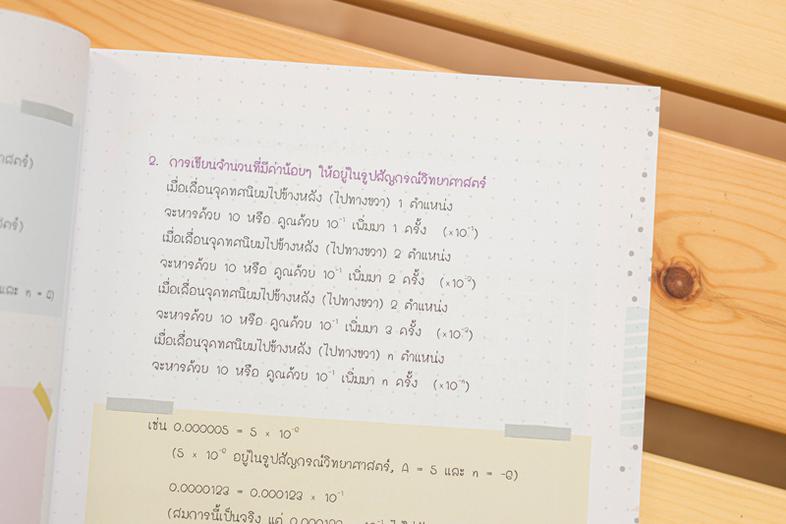 าสตร์)
ตร์)
และ n = 6)
2. การเขียนจำนวนที่มีค่าน้อยๆ ให้อยู่ในรูปสัญกรณ์วิทยาศาสตร์
เมื่อเลื่อนจุดทศนิยมไปข้างหลัง (ไปทางขวา) 1 ตำแหน่ง
จะหารด้วย 10 หรือ คูณด้วย 10⁻¹ เพิ่มมา 1 ครั้ง (×10⁻¹)
เมื่อเลื่อนจุดทศนิยมไปข้างหลัง (ไปทางขวา) 2 ตำแหน่ง
จะหารด้วย 10 หรือ คูณด้วย 10⁻¹ เพิ่มมา 2 ครั้ง (×10⁻²)
เมื่อเลื่อนจุดทศนิยมไปข้างหลัง (ไปทางขวา) 2 ตำแหน่ง
จะหารด้วย 10 หรือ คูณด้วย 10⁻¹ เพิ่มมา 3 ครั้ง
เมื่อเลื่อนจุดทศนิยมไปข้างหลัง (ไปทางขวา) n ตำแหน่ง
จะหารด้วย 10 หรือ คูณด้วย 10⁻¹ เพิ่มมา n ครั้ง (×10⁻ⁿ)
เช่น 0.000005 = 5 × 10⁻⁶
(5 × 10⁻⁶ อยู่ในรูปสัญกรณ์วิทยาศาสตร์, A = 5 และ n = -6)
0.0000123 = 0.000123 × 10⁻¹
(สมการนี้เป็นจริง แต่ 0.000123